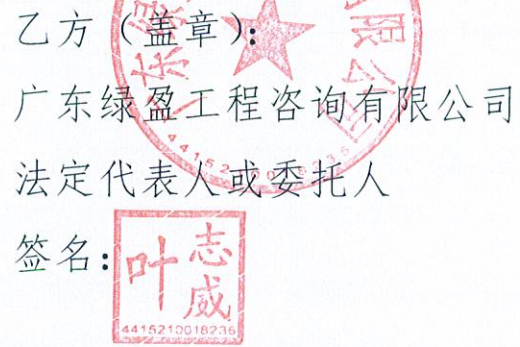 乙方（盖章）：
广东绿盈工程咨询有限公司
法定代表人或委托人
签名：
叶志威
4415210018236